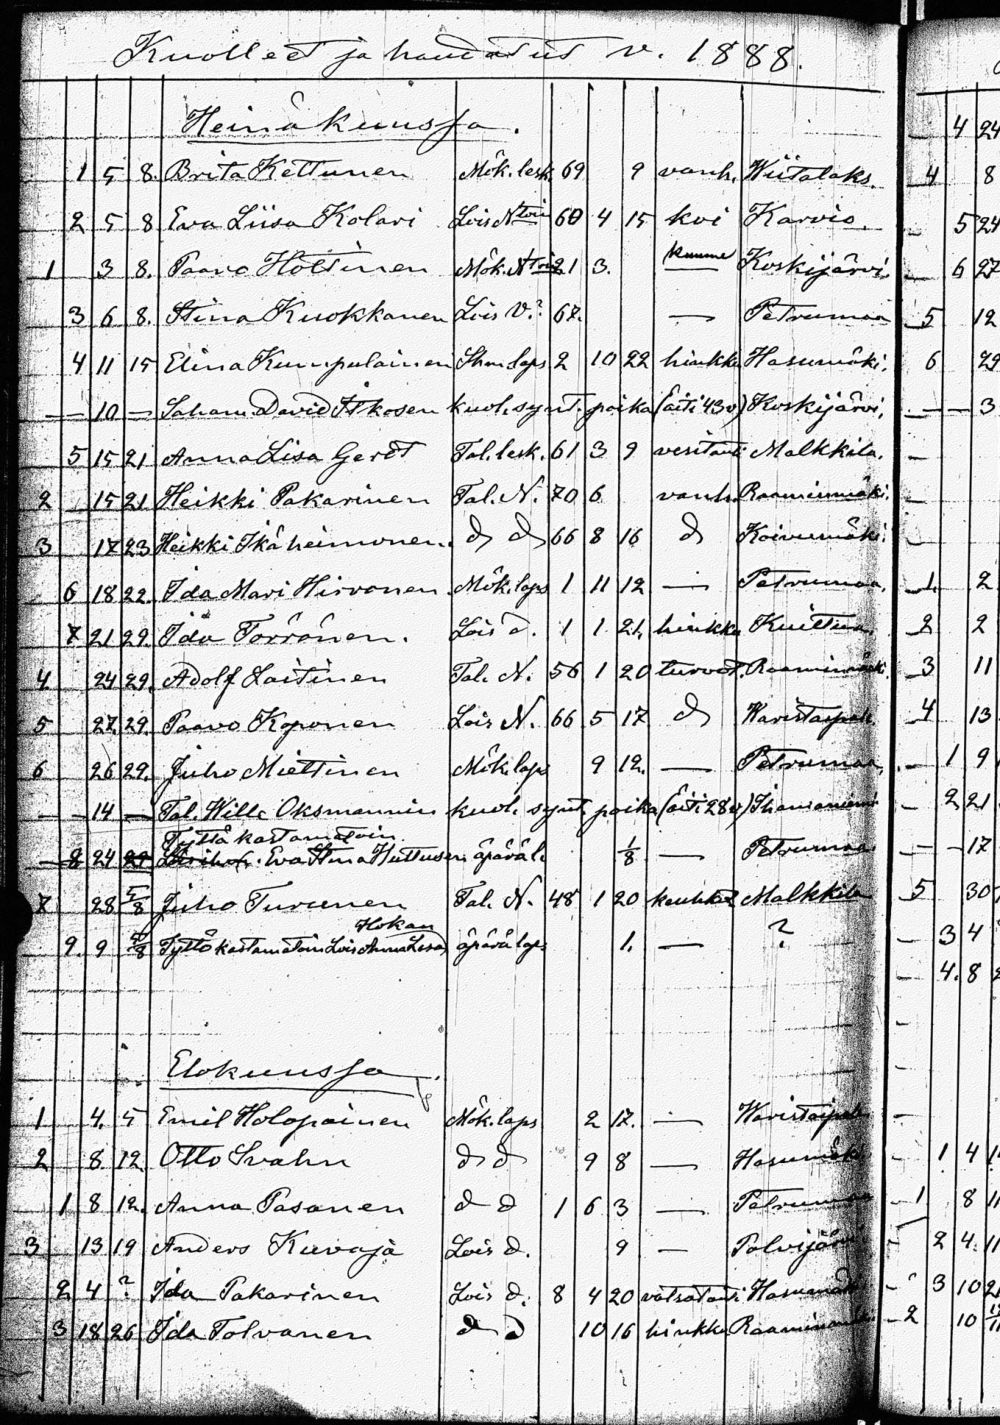 Kuolleet ja haudatut v. 1888.
Heinäkuussa.
1 5 8. Brita Kettunen Mök. lesk. 69 9 vanh. Wiitalaks.
2 5 8 Eva Liisa Kolari Lois N 60 4 15 koi Karvio.
1 3 8. Paavo Holttinen Mök. N 21 3. kuume Koskijärvi
3 6 8. Stina Kuokkanen Lois V. 67. — Petrumaa
4 11 15 Elina Kumpulainen laps 2 10 22 hinkku Hasumäki.
— 10 — David Itkosen kuol. synt. poika (äiti 43 v) Koskijärvi.
5 15 21 Anna Lisa Gerdt Tal. lesk. 61 3 9 vesitauti Malkkila.
2 15 21 Heikki Pakarinen Tal. N. 70 6 vanh. Raaminmäki.
3 17 23 Heikki Ikäheimonen. d d 66 8 16 d Koivumäki.
6 18 22. Ida Mari Hirvonen Mök. laps 1 11 12 — Petrumaa.
7 21 29. Ida Törrönen. Lois d. 1 1 21. hinkku Kuittua.
4 24 29. Adolf Laitinen Tal. N. 56 1 20 turvot. Raaminmäki.
5 27. 29. Paavo Koponen Lois N. 66 5 17 d Waristaipale
6 26 29. Juho Miettinen Mök. laps 9 12. — Petrumaa.
— — 14 — Tal. Wille Oksmannin kuol. synt. poika (äiti 28 v) Ihamaniemi
Tyttö kastamatoin
8 24 29 Eva Stina Huttusen äpäräl. 1/8 — Petrumaa
7 28 5/8 Juho Turunen Tal. N. 48 1 20 keuhkot. Malkkila
Hokan
9. 9 5/8 Tyttö kastamatoin Lois Anna Lisa äpärä lap. 1. — ?
Elokuussa.
1 4. 5 Emil Holopainen Mök. laps 2 17. — Waristaipale
2 8. 12 Otto Svahn d d 9 8 — Hasumäki
1 8 12. Anna Pasanen d d 1 6 3 — Petrumaa
3 13 19 Anders Kuvaja Lois d. 9 — Polvijärvi
2 4 ? Ida Pakarinen Lois d. 8 4 20 vatsatauti Hasumäki
3 18 26 Ida Tolvanen d d 10 16 hinkku Raaminmäki